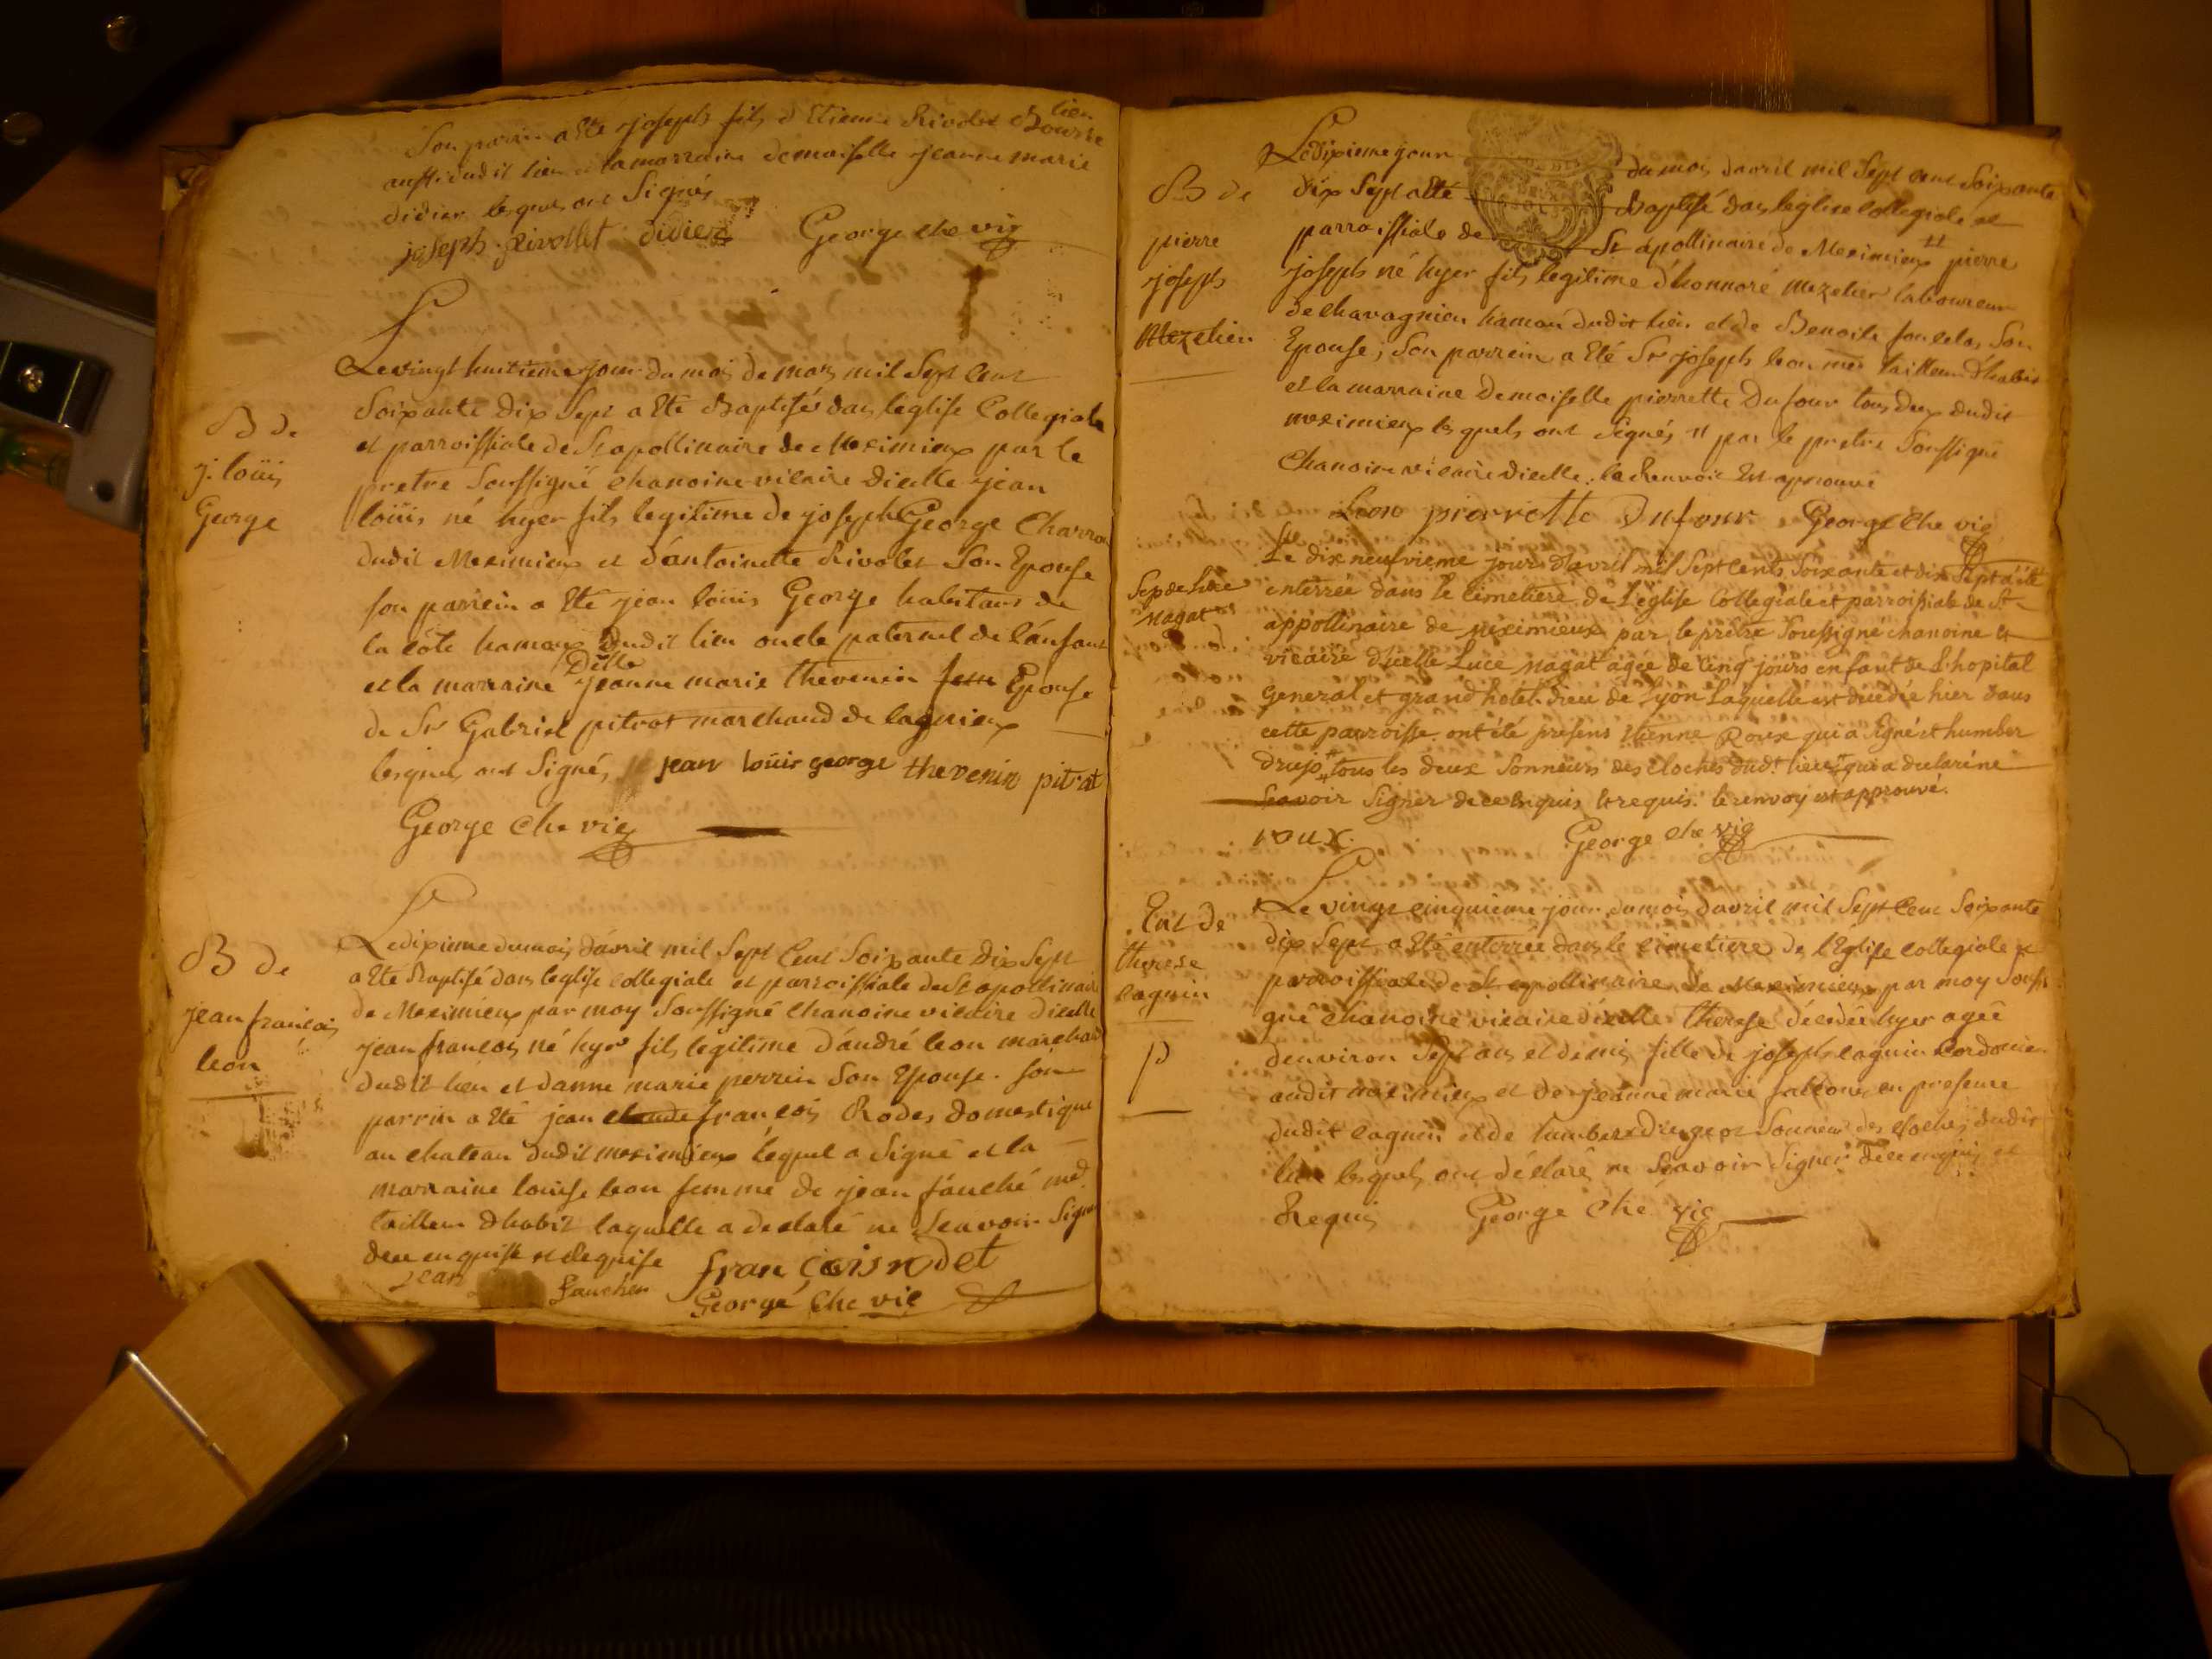 Son parrin a Eté joseph fils d'Etienne Rivolet Bourre lieu
aussi dudit lieu et la marraine demoiselle jeanne marie
didier lesquels ont Signés
joseph Rivollet didier George che vic
Le vingt huitieme jour du mois de mars mil Sept Cent
Soixante dix Sept a Eté Baptisé dans leglise Collegiale
et parroissiale de St apollinaire de Meximieux par le
pretre Soussigné chanoine vicaire dicelle jean
loüis né hyer fils legitime de joseph George Charron
dudit Meximieux et d'antoinette Rivolet Son Epouse
son parrein a Eté jean loüis George habitant de
la côte hameau dudit lieu oncle paternel de l'ênfant
et la marraine Delle jeanne marie thevenin Epouse
de Sr Gabriel pitrat marchand de lagnieux
lesquels ont Signés jean loüis george thevenin pitrat
George che vic
B de
j. loüis
George
Le dixieme du mois d'avril mil Sept Cent Soixante Dix Sept
a Eté Baptisé dans leglise collegiale et parroissiale de St apollinaire
de Meximieux par moy Soussigné chanoine vicaire dicelle
jean francois né hyer fils legitime d'andré leon marchand
dudit lieu et danne marie perrein Son Epouse. son
parrin a Eté jean claude francois Rodes domestique
au chateau dudit meximieux lequel a Signé et la
marraine louise leon femme de jean fauché md
tailleur dhabit laquelle a declaré ne Scavoir Signer
dece enquise et Requise françois rodet
jean faucher
George che vic
B de
jean francois
leon
Le dixieme jour du mois d'avril mil Sept cent Soixante
dix Sept a Eté Baptisé dans leglise Collegiale et
parroissiale de St apollinaire de Meximieux pierre
joseph né hyer fils legitime d'honnoré mezelier laboureur
de chavagnieu hameau dudit lieu et de Benoite Son
Epouse; Son parrein a Eté Sr joseph leon me tailleur d'habit
et la marraine Demoiselle pierrette Dufour tous Deux dudit
meximieux lesquels ont Signés par le pretre Soussigné
Chanoine vicaire dicelle: le Renvoi Est aprouvé
Leon pierrette Dufour George che vic
B de
pierre
joseph
Mezelier
Le dix neufvieme jour d'avril mil Sept cents Soixante et dix Sept a été
enterrée dans le cimetiere de L'église Collegiale et parroissiale de St
appollinaire de meximieux par le prêtre Soussigné chanoine et
vicaire d'icelle Luce nagat agée de cinq jours enfant de L'hopital
general et grand hotel-Dieu de Lyon Laquelle est decedée hier dans
cette parroisse. ont été presens Etienne Roux qui a signé et humber
tous les deux Sonneurs des cloches dudt lieu qui a declaré ne
Scavoir Signer de ce enquis et requis. le renvoy est approuvé.
roux. George che vic
Sep de Luce
nagat
Le vingt cinquieme jour du mois d'avril mil Sept Cent Soixante
dix Sept a Eté enterrée dans le cimetiere de l'Eglise collegiale et
parroissiale de St apollinaire de Meximieux par moy Soussi
gné chanoine vicaire dicelle therese décédée hyer agée
denviron Sept ans et demis fille de joseph lagnin Cordonnier
audit meximieux et de jeanne marie en presence
dudit lagnin et de humbert Sonneur des cloches dudit
lieu lesquels ont déclaré ne Scavoir Signer de ce enquis et
Requis George che vic
Ent de
therese
lagnin
P